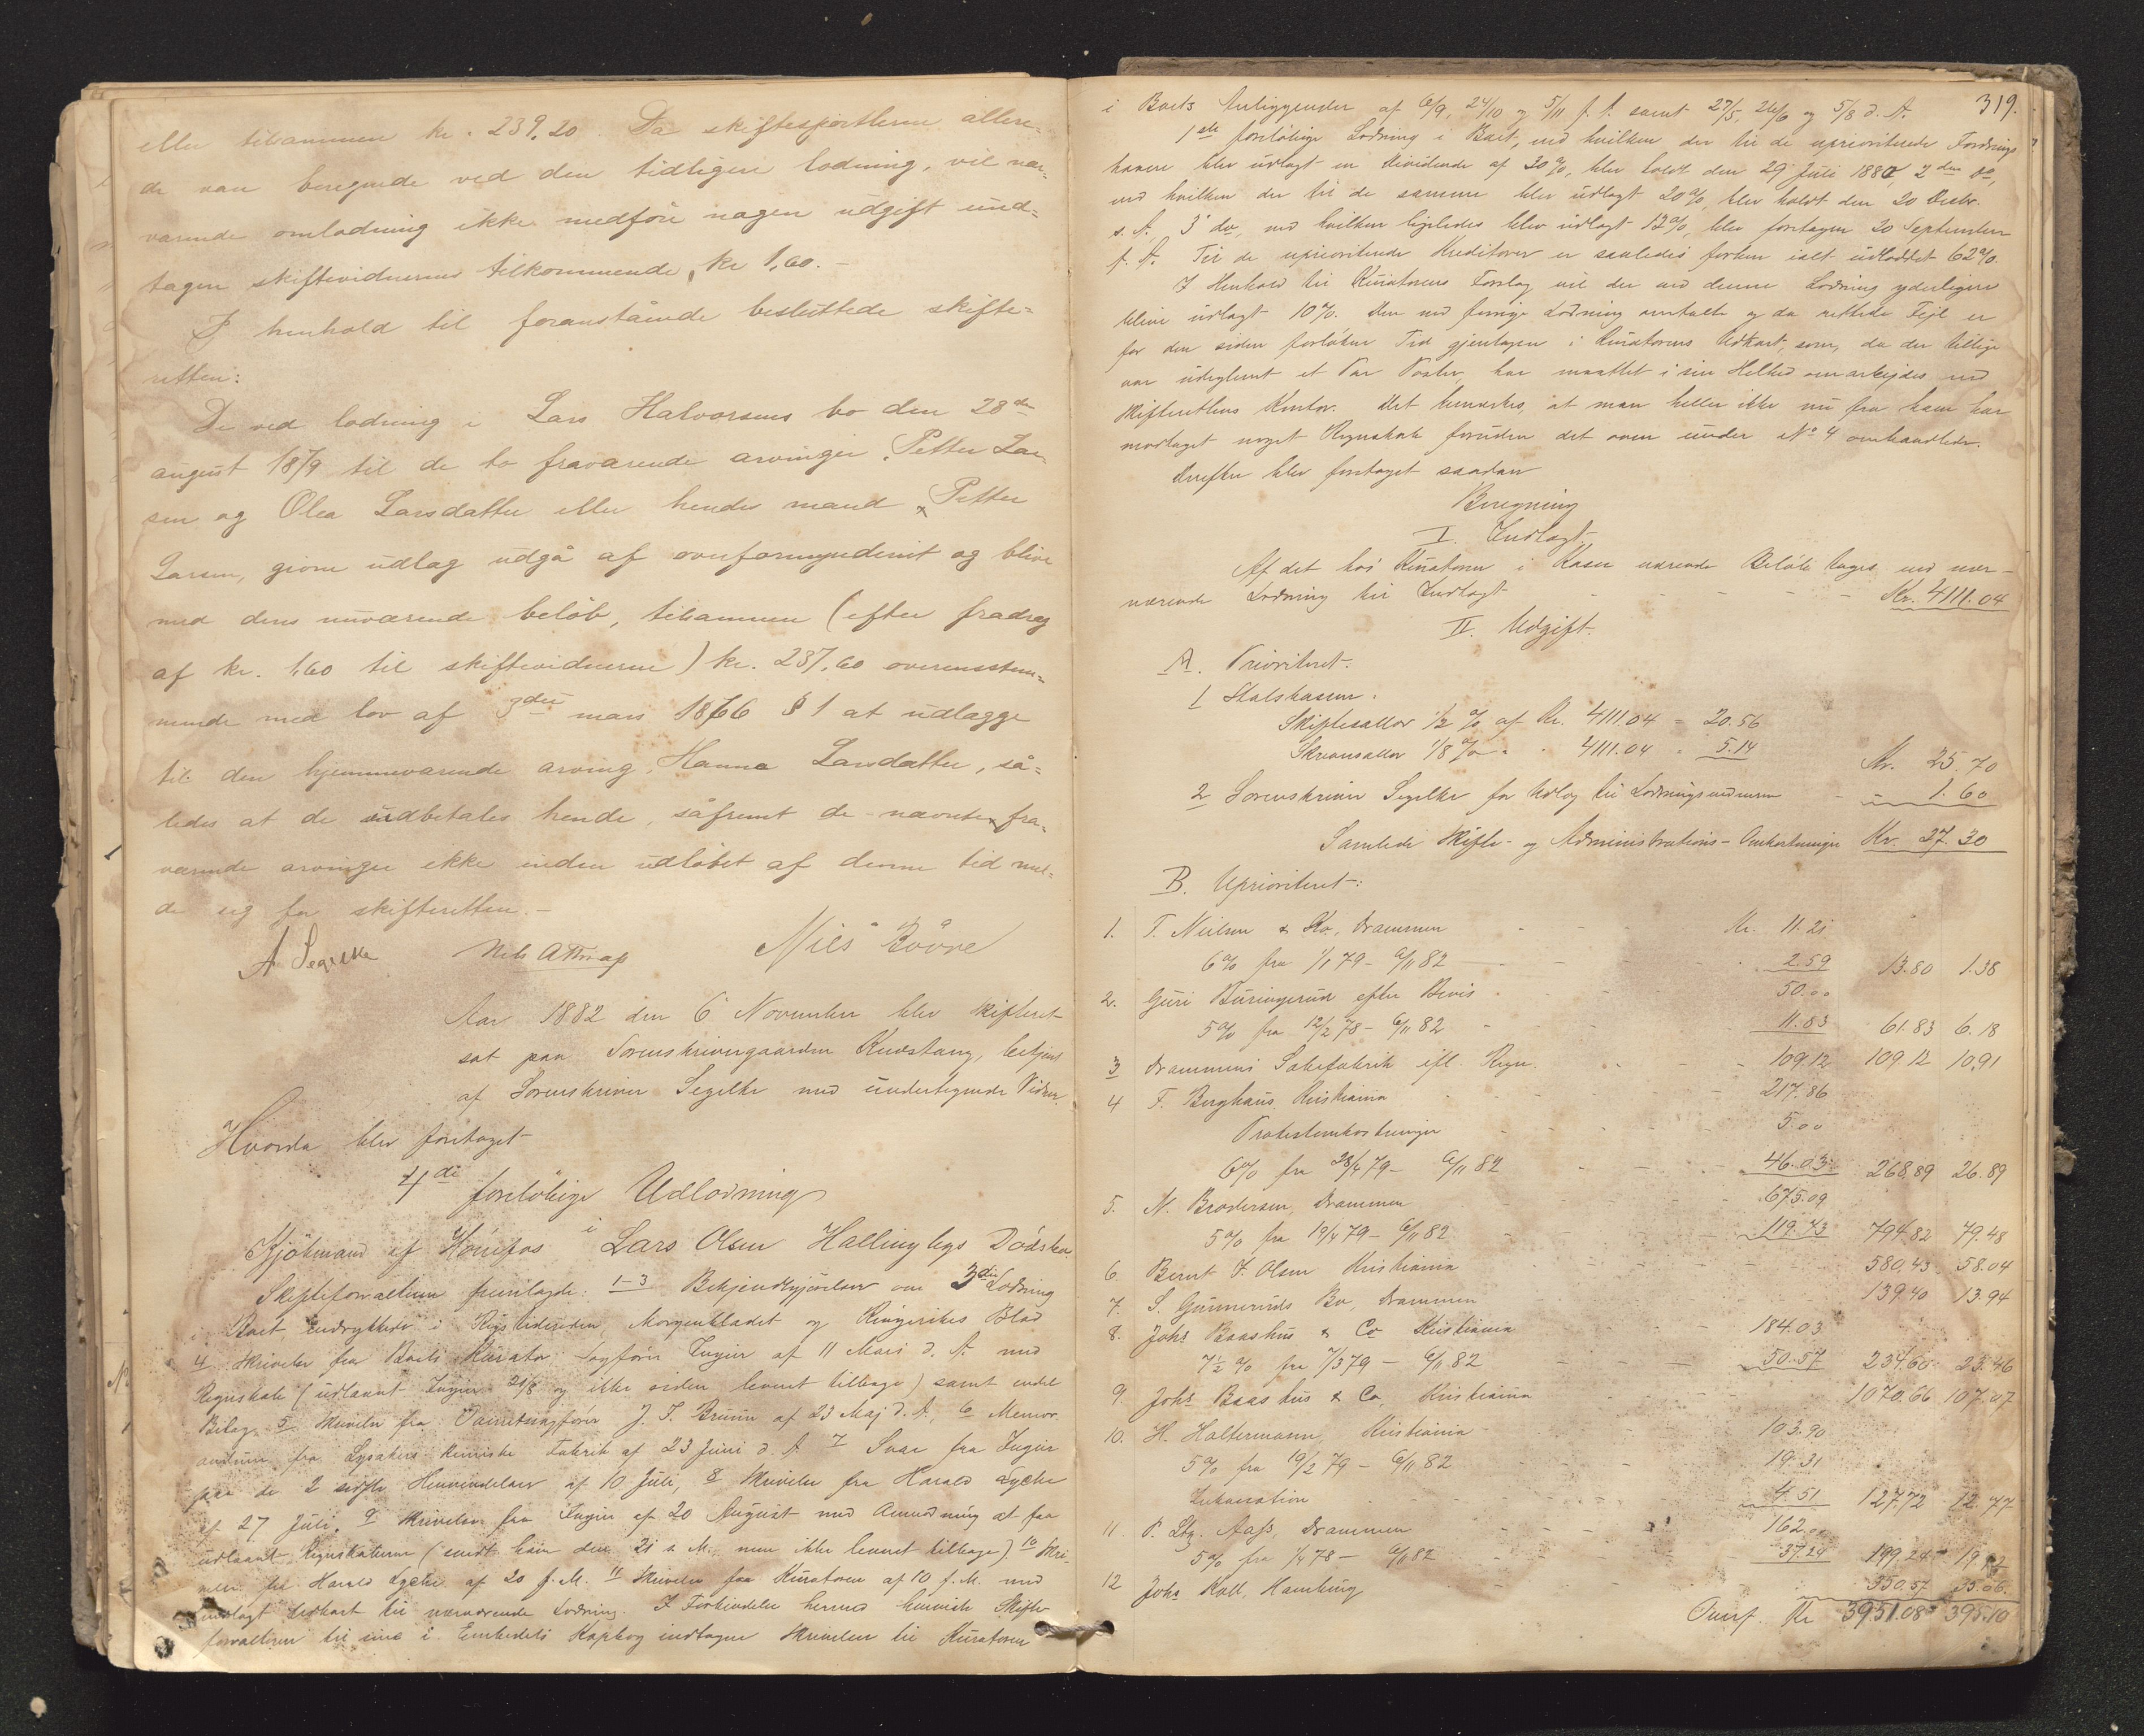 eller tilsammen kr. 239,20. Da skiftesportlerne allere-
de var beregnede ved den tidligere lodning, vil nær-
værende omlodning ikke medføre nogen udgift und-
tagen skiftevidnernes tilkommende, kr 1,60.-
I henhold til foranstående besluttede skifte-
retten:
De ved lodning i Lars Halvorsens bo den 28de
august 1879 til de to fraværende arvinger, Petter Lar-
sen og Olea Larsdatter eller hendes mand Petter
Larsen, gjorte udlag udgå af overformynderiet og blive
med deres nuværende beløb, tilsammen (efter fradrag
af kr. 1,60 til skiftevidnerne) kr. 237,60 overensstem-
mende med lov af 3die mars 1866 § 1 at udlægge
til den hjemmeværende arving, Hanna Larsdatter, så-
ledes at de udbetales hende, såfremt de nævnte fra-
værende arvinger ikke inden udløbet af denne tid mel-
de sig for skifteretten.-
A Segelcke Nils Attrap Nils Bøvre
Aar 1882 den 6 November blev Skifteret
sat paa Sorenskrivergaarden Rudstang, betjent
af Sorenskriver Segelke med undertegnede Vidner
Hvorda blev foretaget
4de foreløbige Udlodning
i
Kjøbmand af Hønefos Lars Olsen Hallingbys Dødsbo.
Skifteforvalteren fremlagde: 1-3 Bekjendtgjørelser om 3die Lodning
i Boet indrykkede i Rigstidenden, Morgenbladet og Ringerikes Blad
4 Skrivelse fra Boets Kurator Sagfører Zugier af 11 Mars d. A. med
Regnskab (udlaant 21/8 og ikke siden leveret tilbage) samt endel
Bilag 5 Skrivelse fra J. F. Bruun af 23 Maj d. A., 6 Memor-
andum fra Lysakers kemiske Fabrik af 23 Juni d. A 7 Svar fra
paa de 2 sidste Henvendelser af 10 Juli, 8 Skrivelse fra Harald Lyche
af 27 Juli, 9 Skrivelse fra af 20 August med Anmodning at faa
udlaant Regnskaberne (sendt ham den 21 s. M. men ikke leveret tilbage) 10 Skri-
velse fra Harald Lyche af 20 f. M. 11 Skrivelse fra Kuratoren af 10 f. M. med
Udkast til nærværende Lodning. I Forbindelse hermed henviste Skifte-
forvalteren til sine i Embedets Kopibog indtagne Skrivelser til Kuratoren
319.
i Boets Anliggender af 6/9, 24/10 og 5/11 f. A. samt 27/5, 26/6 og 5/8 d. A.
1ste foreløbige Lodning i Boet, ved hvilken der til de uprioriterede Fordrings-
havere blev udlagt en Dividende af 30 %, blev holdt den 29 Juli 1880, 2den do,
ved hvilken der til de samme blev udlagt 20 %, blev holdt den 20 Decbr.
s. A. 3 do, ved hvilken ligeledes blev udlagt 12 %, blev foretagen 20 September
f. A. Til de uprioriterede Kreditorer er saaledes forhen ialt udloddet 62 %.
I Henhold til Kuratorens Forslag vil der ved denne Lodning yderligere
blive udlagt 10 %. Den ved forrige Lodning omtalte og da rettede Fejl er
for den siden forløbne Tid gjentagen i Kuratorens Udkast, som, da der tillige
var udeglemt et Par Poster, har maattet i sin Helhed omarbejdes ved
Skifterettens Kontor. Det bemærkes, at man heller ikke nu fra ham har
modtaget noget Regnskab foruden det oven under No 4 omhandlede.
Derefter blev foretaget saadan
Beregning
I. Indtægt.
Af det hos Kuratoren i Kasse værende Beløb tages ved nær-
værende Lodning til Indtægt - - - - - Kr. 4111.04
II. Udgift.
A. Prioriteret.
1 Statskassen.
Skiftesallær 1/2 % af Kr. 4111.04 = 20.56
Skriversallær 1/8 % " " 4111.04 = 5.14 Kr. 25.70
2 Sorenskriver Segelke for Udlæg til Lodningsvidnerne - " 1.60
Samlede Skifte- og Administrations-Omkostninger Kr. 27.30
B. Uprioriteret:
1. T. Nielsen & Ko, Drammen - - - Kr. 11.21
6 % fra 1/1 79 - 6/11 82 - - - 2.59 13.80 1.38
2. Guri Buringerud efter Bevis - - 50.00
5 % fra 12/2 78 - 6/11 82 - - 11.83 61.83 6.18
3 Drammens Sæbefabrik ifl. Regn. - - 109.12 109.12 10.91
4 F. Berghaus Kristiania - - 217.86
Protestomkostninger - - 5.00
6 % fra 28/4 79 - 6/11 82 - - 46.03 268.89 26.89
5. N. Brodersen, Drammen - - 675.09
5 % fra 19/4 79 - 6/11 82 - - 119.73 794.82 79.48
6. Bernt J. Olsen Kristiania - - 580.43 58.04
7. S. Gunneruds Bo, Drammen - - 139.40 13.94
8. Johs Baashus & Co Kristiania - - 184.03
7 1/2 % fra 7/3 79 - 6/11 82 - - 50.57 234.60 23.46
9. Johs Baashus & Co, Kristiania - - 1070.66 107.07
10. H. Haltermann, Kristiania - - 103.90
5 % fra 19/2 79 - 6/11 82 - - 19.31
- - 4.51 127.72 12.77
11. P. Ltz. Aass, Drammen - - 162.00
5 % fra 1/4 78 - 6/11 82 - - 37.24 199.24 19.92
12 Johs Koll, Hamburg - - 350.57 35.06
Transp. Kr 3951.08 395.10